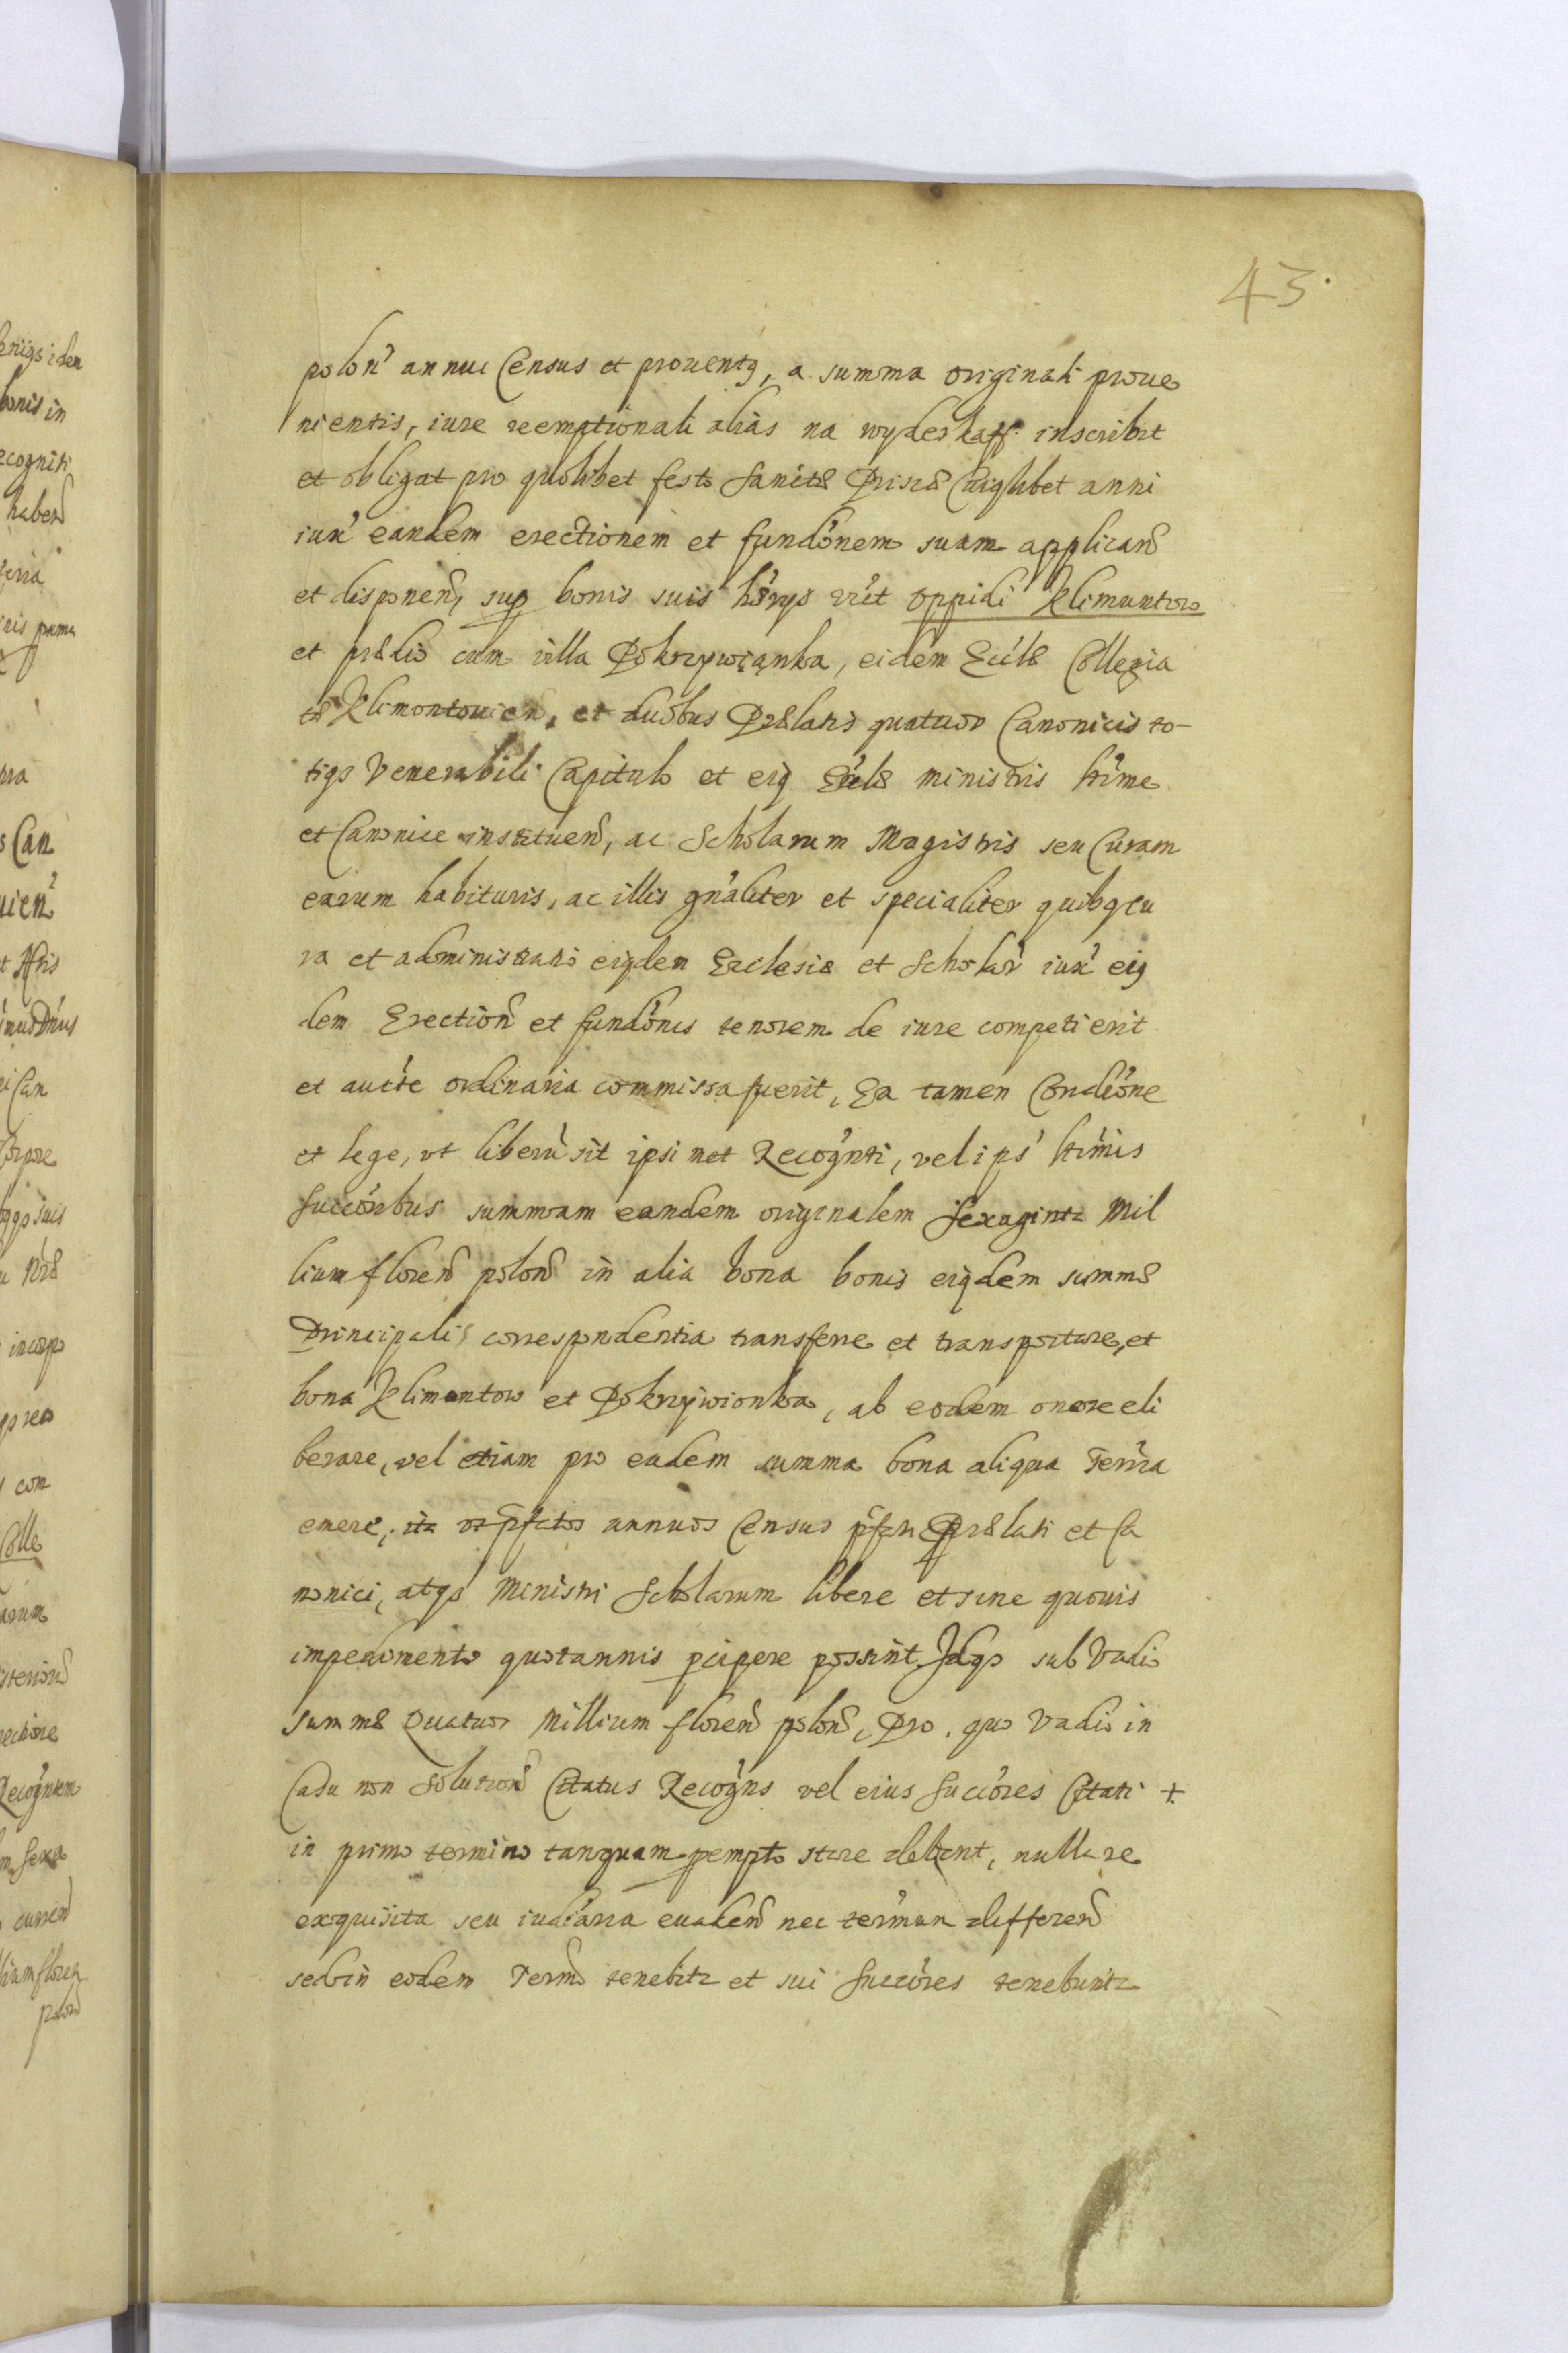 43.
polon annui Census et prouentq, a summa originali proue
nientis, iure reemptionali aliàs na wyderkaff inscribit
et obligat pro quolibet festo Sanctæ Priscæ Cuiqlibet anni
iux eandem erectionem et fundonem suam applicand
et disponend, sup bonis suis hæryo vrit oppidi Klimuntow
et prædio cum villa Pokrzywianka, eidem Eccle Collegia
tæ Klimontouien, et duobus Prælatis quatuor Canonicis to-
tiqs Venerabili Capitulo et eiq Eccle ministris ltime
et Canonice instituend, ac Scholarum Magistris seu Curam
earum habituris, ac illis gnaliter et specialiter quibqcu
ra et administratio eiqdem Ecclesiæ et Scholar iux eiq
dem Erection et fundonis tenorem de iure competierit
et aucte ordinaria commissa fuerit, Ea tamen Condione
et lege, vt liberu sit ipsi met Recognti, vel ips ltimis
Succoribus summam eandem originalem Sexaginta Mil
lium floren polon in alia bona bonis eiqdem summæ
Principalis correspondentia transferre et transportare, et
bona Klimontow et Pokrzywionka, ab eodem onere eli
berare, vel etiam pro eadem summa bona aliqua Terrra
emere, ita vt pfatos annuos Census pfati Prælati et Ca
nonici, atqs Ministri Scholarum libere et sine quouis
impedimento quotannis pcipere possint Idqs sub Vadio
summæ Quatuor Millium floren polon, Pro quo Vadio in
Casu non Solution Citatus Recogns vel eius Succores Citati +
in primo termino tanquam pempto stare debent, nulla re
exquisita seu iudiaria euadend nec termun differend
sed in eodem Termo tenebitr et sui Succores tenebuntr